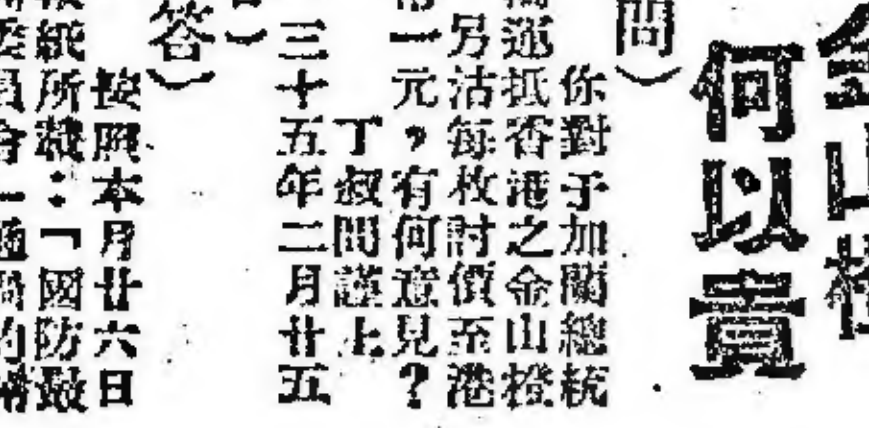 金山橙
何以賣
問）
你對于加蘭總統
運抵香港之金山橙
另沽每枚討價至港
一元，有何意見？
丁淑問謹上
三十五年二月廿五
答）
按照本月廿六日
紙所載：「國防最